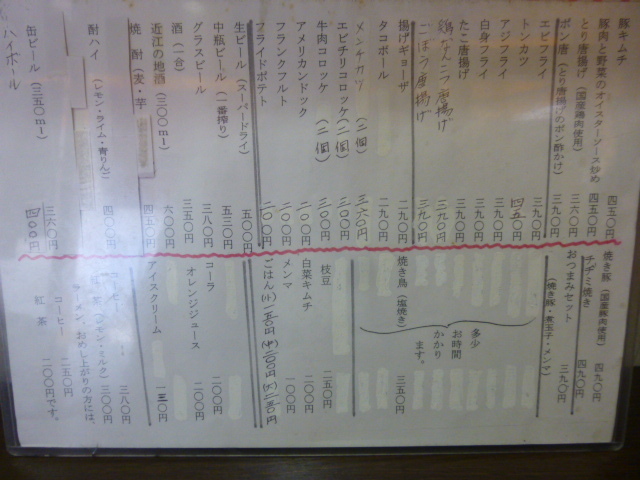 豚キムチ 四五〇円
豚肉と野菜のオイスターソース炒め 四五〇円
とり唐揚げ(国産鶏肉使用) 三六〇円
ポン唐(とり唐揚げのポン酢かけ) 三九〇円
エビフライ 三九〇円
トンカツ 四五〇円
アジフライ 三九〇円
白身フライ 三九〇円
たこ唐揚げ 三九〇円
鶏なんこつ唐揚げ 三九〇円
ごぼう唐揚げ 三九〇円
揚げギョーザ 二九〇円
タコボール 二九〇円
メンチカツ(二個) 三六〇円
エビチリコロッケ(二個) 三〇〇円
牛肉コロッケ(二個) 三〇〇円
アメリカンドック 二〇〇円
フランクフルト 二〇〇円
フライドポテト 二〇〇円
生ビール(スーパードライ) 五〇〇円
中瓶ビール(一番搾り) 五三〇円
グラスビール 三八〇円
酒(一合) 三五〇円
近江の地酒(三〇〇ml) 六〇〇円
焼酎(麦・芋 四五〇円
酎ハイ(レモン・ライム・青りんご) 四〇〇円
缶ビール(三五〇ml) 三六〇円
ハイボール 四〇〇円
焼き豚(国産豚肉使用) 四九〇円
チヂミ焼き 四九〇円
おつまみセット 三九〇円
(焼き豚・煮玉子・メンマ)
多少
お時間
かかり
ます。
焼き鳥(塩焼き) 三五〇円
枝豆 二五〇円
白菜キムチ 二〇〇円
メンマ 一〇〇円
ごはん(小)一五〇円(中)二〇〇円(大)二五〇円
コーラ 二〇〇円
オレンジジュース 二〇〇円
アイスクリーム 一三〇円
コーヒー 三八〇円
紅茶(レモン・ミルク) 三〇〇円
ラーメン、おめし上がりの方には、
コーヒー 二五〇円
紅茶 二〇〇円です。